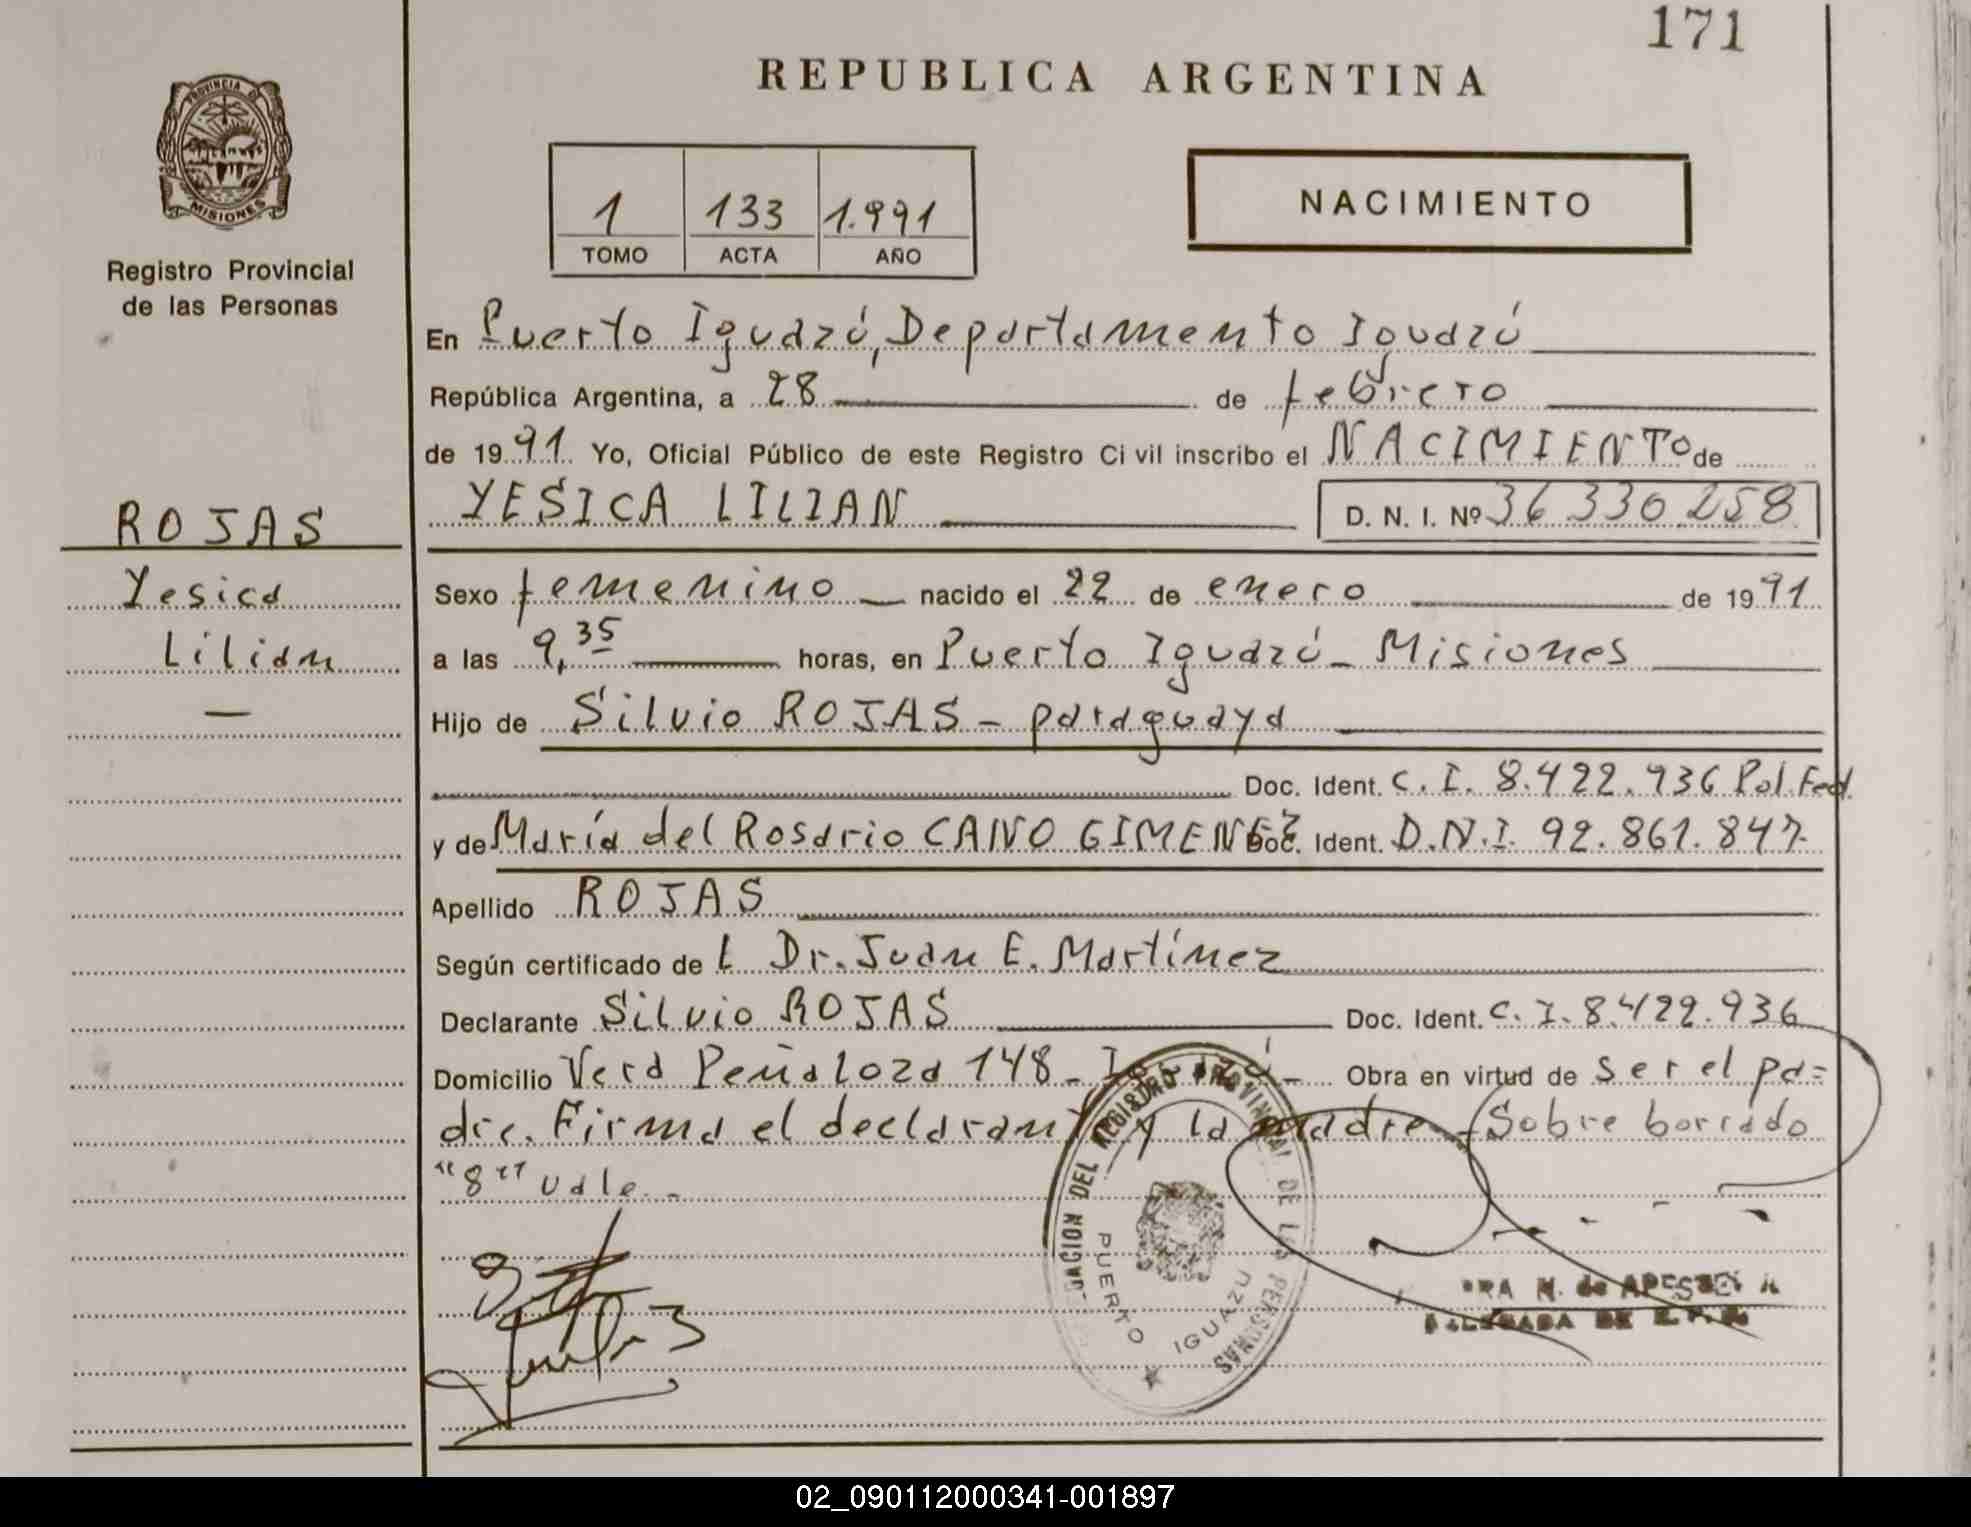 171
REPUBLICA ARGENTINA
PROVINCIA DE
MISIONES
Registro Provincial
de las Personas
1 133 1.991
TOMO ACTA AÑO
NACIMIENTO
En Puerto Iguazú, Departamento Iguazú
República Argentina, a 28 de febrero
de 1991 Yo, Oficial Público de este Registro Civil inscribo el NACIMIENTO de
YESICA LILIAN D. N. I. Nº 36330258
ROJAS
Yesica
Lilian
—
Sexo femenino — nacido el 22 de enero de 1991
a las 9,35 horas, en Puerto Iguazú - Misiones
Hijo de Silvio ROJAS - paraguaya
Doc. Ident. C. I. 8.422.936 Pol. Fed.
y de María del Rosario CANO GIMENEZ Doc. Ident. D.N.I. 92.861.847-
Apellido ROJAS
Según certificado de L Dr. Juan E. Martínez
Declarante Silvio ROJAS Doc. Ident. C. I. 8.422.936
Domicilio Vera Peñaloza 148 - Iguazú - Obra en virtud de ser el pa=
dre. Firma el declarante y la madre - Sobre borrado
"8" vale.-
DEL REGISTRO PROVINCIAL DE LAS PERSONAS
PUERTO IGUAZU
DELEGADA DE
02_090112000341-001897